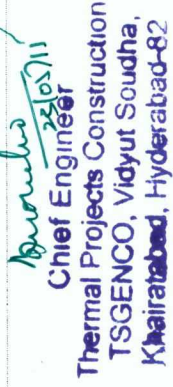 23/05/15
Chief Engineer
Thermal Projects Construction
TSGENCO, Vidyut Soudha,
Khairatabad, Hyderabad-82